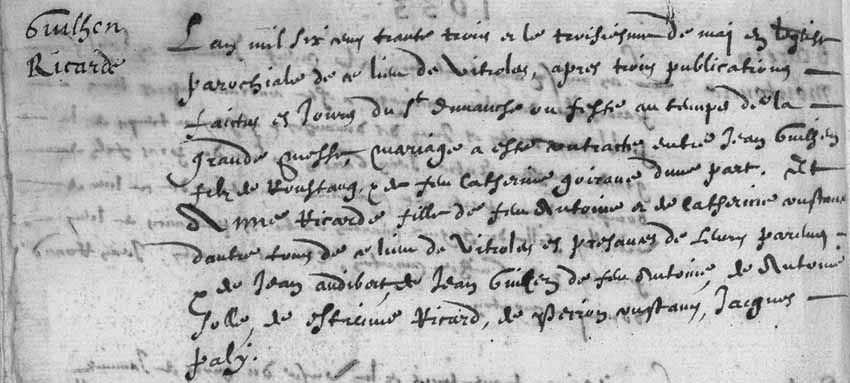 Guilhen
Ricarde
Lan mil six cens trante trois et le troisiesme de mai en leglise
parochiale de ce lieu de Vitroles, apres trois publications
faictes es Jours du St dimanche ou feste au temps de la
grande messe, mariage a este contracte entre Jean Guilhen
filz de Roustang, & de feu Catherine goirane dune part. Et
Anne Ricarde fille de feu Antoine et de Catherine
dautre tous de ce lieu de Vitroles es presances de leurs parens
& de Jean audibert, de Jean Guilhen de feu Antoine, de Antoine
Jolle, de estienne Ricard, de Jacques